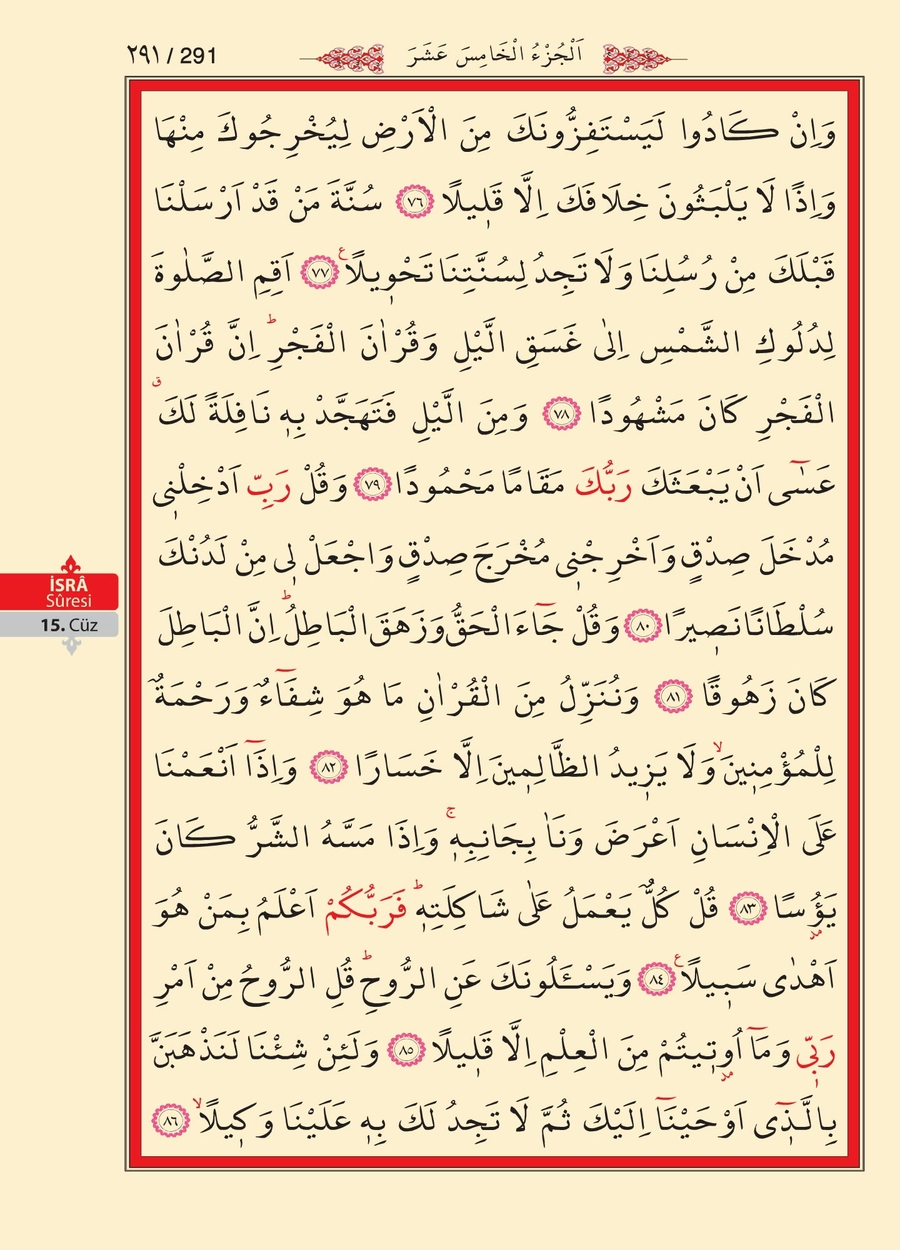 ٢٩١ / 291
اَلْجُزْءُ الْخَامِسَ عَشَرَ
وَاِنْ كَادُوا لَيَسْتَفِزُّونَكَ مِنَ الْاَرْضِ لِيُخْرِجُوكَ مِنْهَا
وَاِذًا لَا يَلْبَثُونَ خِلَافَكَ اِلَّا قَل۪يلًا ﴿٧٦﴾ سُنَّةَ مَنْ قَدْ اَرْسَلْنَا
قَبْلَكَ مِنْ رُسُلِنَا وَلَا تَجِدُ لِسُنَّتِنَا تَحْو۪يلًا ع ﴿٧٧﴾ اَقِمِ الصَّلٰوةَ
لِدُلُوكِ الشَّمْسِ اِلٰى غَسَقِ الَّيْلِ وَقُرْاٰنَ الْفَجْرِ ط اِنَّ قُرْاٰنَ
الْفَجْرِ كَانَ مَشْهُودًا ﴿٧٨﴾ وَمِنَ الَّيْلِ فَتَهَجَّدْ بِه۪ نَافِلَةً لَكَ ق
عَسٰٓى اَنْ يَبْعَثَكَ رَبُّكَ مَقَامًا مَحْمُودًا ﴿٧٩﴾ وَقُلْ رَبِّ اَدْخِلْن۪ى
مُدْخَلَ صِدْقٍ وَاَخْرِجْن۪ى مُخْرَجَ صِدْقٍ وَاجْعَلْ ل۪ى مِنْ لَدُنْكَ
سُلْطَانًا نَص۪يرًا ﴿٨٠﴾ وَقُلْ جَٓاءَ الْحَقُّ وَزَهَقَ الْبَاطِلُ ط اِنَّ الْبَاطِلَ
كَانَ زَهُوقًا ﴿٨١﴾ وَنُنَزِّلُ مِنَ الْقُرْاٰنِ مَا هُوَ شِفَٓاءٌ وَرَحْمَةٌ
لِلْمُؤْمِن۪ينَ لا وَلَا يَز۪يدُ الظَّالِم۪ينَ اِلَّا خَسَارًا ﴿٨٢﴾ وَاِذَٓا اَنْعَمْنَا
عَلَى الْاِنْسَانِ اَعْرَضَ وَنَاٰ بِجَانِبِه۪ ج وَاِذَا مَسَّهُ الشَّرُّ كَانَ
يَؤُسًا ﴿٨٣﴾ قُلْ كُلٌّ يَعْمَلُ عَلٰى شَاكِلَتِه۪ ط فَرَبُّكُمْ اَعْلَمُ بِمَنْ هُوَ
اَهْدٰى سَب۪يلًا ع ﴿٨٤﴾ وَيَسْـَٔلُونَكَ عَنِ الرُّوحِ ط قُلِ الرُّوحُ مِنْ اَمْرِ
رَبّ۪ى وَمَٓا اُو۫ت۪يتُمْ مِنَ الْعِلْمِ اِلَّا قَل۪يلًا ﴿٨٥﴾ وَلَئِنْ شِئْنَا لَنَذْهَبَنَّ
بِالَّذ۪ٓى اَوْحَيْنَٓا اِلَيْكَ ثُمَّ لَا تَجِدُ لَكَ بِه۪ عَلَيْنَا وَك۪يلًا لا ﴿٨٦﴾
İSRÂ
Sûresi
15. Cüz